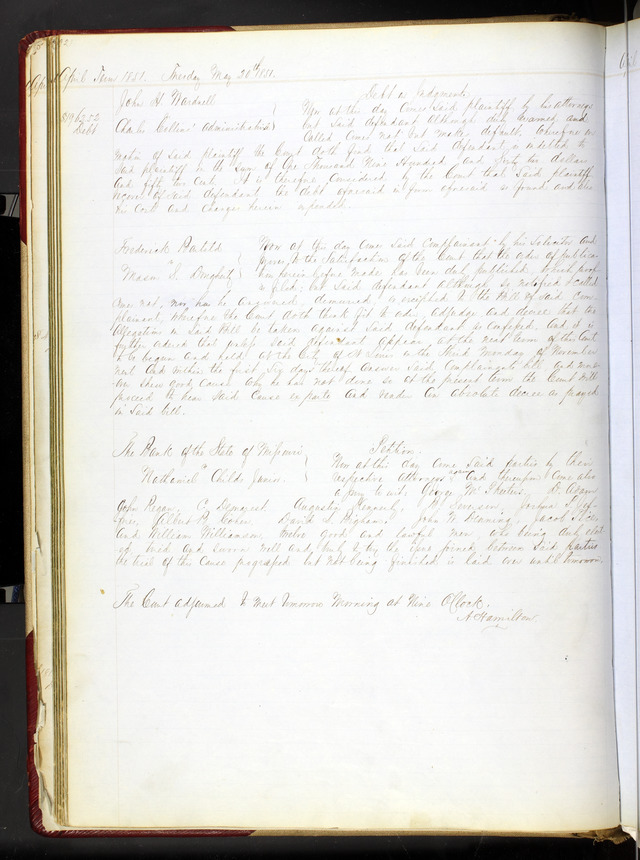 April Term 1851. Tuesday May 20th 1851.
Debt & Judgment
John H. Wardwell
Charles Collins' administrator
Debt
Now at this day comes said plaintiff by his attorneys
but said defendant although duly warned and
called comes not but makes default, wherefore on
motion of said plaintiff the Court doth find that said defendant is indebted to
said plaintiff in the sum of One Thousand Nine Hundred and Sixty two dollars
and fifty two cents. It is therefore considered by the Court that said plaintiff
recover of said defendant the debt aforesaid in form aforesaid so found, and also
his costs and charges herein expended.
Frederick
vs
Now at this day comes said Complainant by his Solicitor and
proves to the satisfaction of the Court that the order of publica-
tion herein before made has been duly published, which proof
is filed; but said defendant although so notified & called
comes not, nor has he answered, demurred, or excepted to the Bill of said Com-
plainant, wherefore the Court doth think fit to order, adjudge and decree that the
allegations in said Bill be taken against said defendant as confessed. And it is
further ordered that unless said defendant appear at the next term of this Court
to be begun and held at the City of St Louis on the Third Monday of November
next and within the first Six days thereof answer said Complainants bill and
show good cause why he has not done so at the present term the Court will
proceed to hear said Cause ex parte and render an absolute decree as prayed
in said bill.
The Bank of the State of Missouri
vs
Nathaniel Childs Junr.
Petition.
Now at this day come said parties by their
respective attorneys and thereupon come also
a jury to wit, George W. R. Adams
John Regan, C. Augustus Joshua S.
Albert R. David L. John W. Fleming, Jacob
and William Williamson, twelve good and lawful men, who being duly elect-
ed tried and sworn well and truly to try the issue joined between said parties
the trial of the cause progressed but not being finished is laid over until tomorrow.
The Court adjourned to meet tomorrow Morning at Nine O'Clock.
A Hamilton